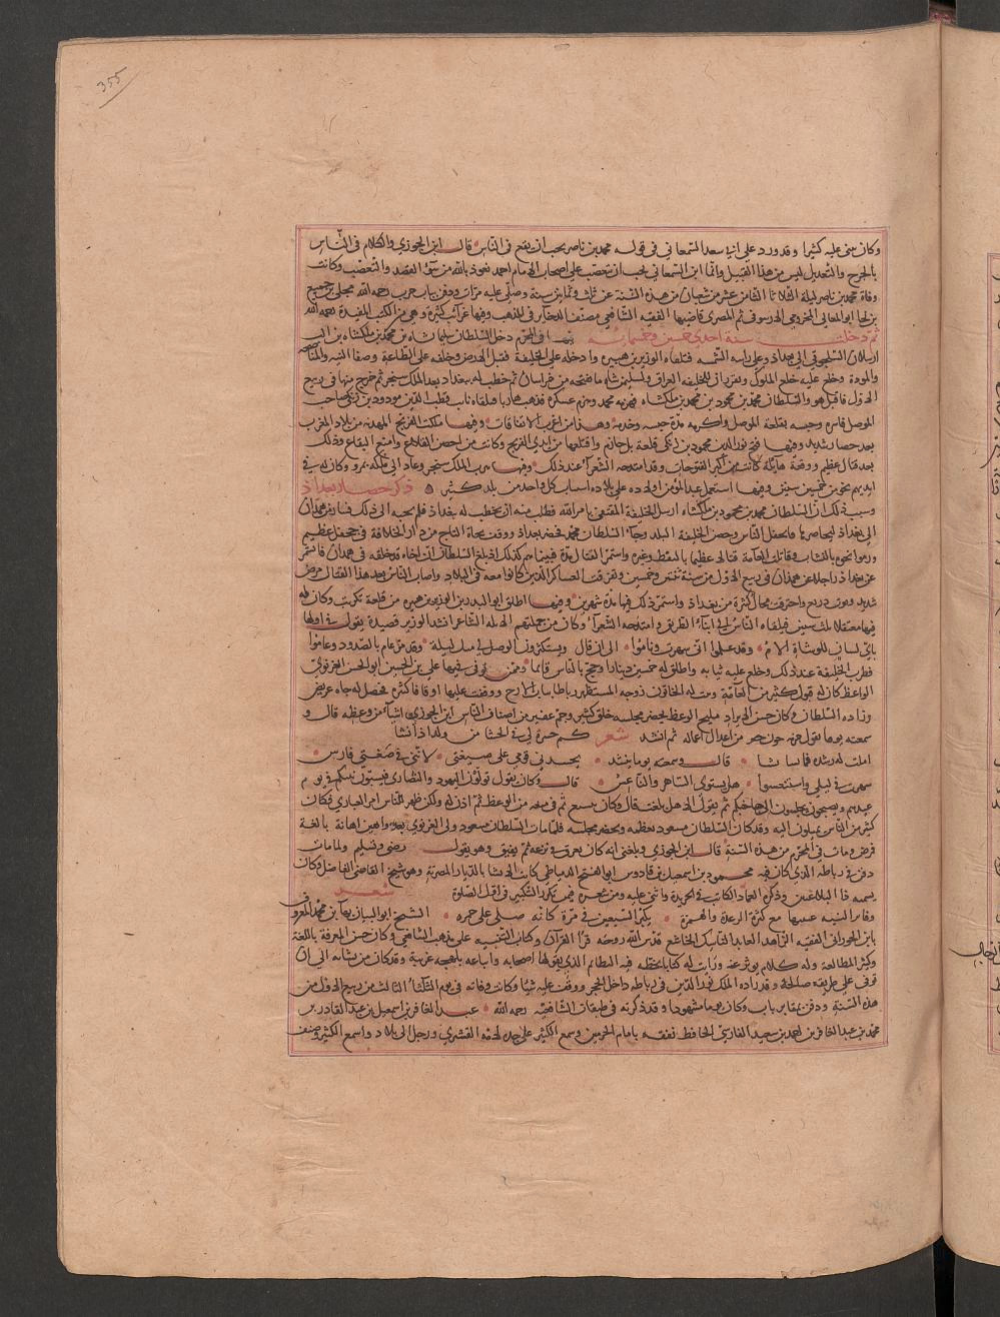 355
وكان سخى عليه كثيرا وقد ورد على ابى سعد السمعانى فى قوله محمد بن ناصر يحب ان يقع فى الناس قال ابن الجوزى والكلام فى الناس
بالجرح والتعديل ليس من هذا القبيل وانما ابن السمعانى يحب ان يتعصب على اصحاب الامام احمد نعوذ بالله من سوء القصد والتعصب وكانت
وفاة محمد بن ناصر ليلة الثلاثا الثامن عشر من شعبان من هذه السنة عن ثلاث وثمانين سنة وصلى عليه مرات ودفن بباب حرب رحمه الله مجلى بن جميع
بن نجا ابو المعالى المخزومى الارسوفى ثم المصرى قاضيها الفقيه الشافعى مصنف الذخاير فى المذهب وفيها غرائب كثيرة وهى من الكتب المفيدة رحمه الله
ثم دخلت سنة احدى خمسين وخمسمائة فى المحرم دخل السلطان سليمان شاه بن محمد بن ملكشاه بن الب
ارسلان السلجوقى الى بغداد وعلى راسه الشمسه فتلقاه الوزير بن هبيرة وادخله على الخليفة فقبل الارض وحلفه على الطاعة وصفا النية والمناصحه
والمودة وخلع عليه خلع الملوك وتقرر ان للخليفه العراق ولسليمن شاه ما يفتحه من خراسان ثم خطب له ببغداد بعد الملك سنجر ثم خرج منها فى ربيع
الاول فاقتتل هو والسلطان محمد بن محمود بن محمد بن ملكشاه فهزمه محمد وهزم عسكره فذهب هاربا فلقاه نايب قطب الدين مودود بن زنكى صاحب
الموصل فاسره وحبسه بقلعة الموصل واكرمه مدة حبسه وخدمه وهذا من اغرب الاتفاقات وفيها ملكت الفرنج المهدية من بلاد المغرب
بعد حصار شديد وفيها فتح نور الدين محمود بن زنكى قلعة تل حارم واقتلعها من ايدى الفرنج وكانت من احصن القلاع وامنع البقاع وذلك
بعد قتال عظيم ووقعة هايلة كانت من اكبر الفتوحات وقد امتدحه الشعرآ عند ذلك وفيها هرب الملك سنجر وعاد الى ملكه بمرو وكان له فى
ايديهم نحو من خمس سنين وفيها استعمل عبد المؤمن اولاده على بلاده استناب كل واحد من بلد كبير ذكر حصار بغداد
وسبب ذلك ان السلطان محمد بن محمود بن ملكشاه ارسل الى الخليفة المقتفى بامر الله فطلب منه ان يخطب له ببغداد فلم يجبه الى ذلك فسار من همدان
الى بغداد ليحاصرها فانجفل الناس وحصن الخليفة البلد وجآ السلطان محمد فحصر بغداد ووقف تجاه التاج من دار الخلافة فى جحفل عظيم
ورموا نحوه بالنشاب وقاتلت العامة قتالا عظيما بالنفط وغيره واستمر القتال مدة فبينما هم كذلك اذ بلغ السلطان ان اخاه قد خلفه فى همدان فانشمر
عن بغداد راجلا عن همدان فى ربيع الاول من سنة ثنتين وخمسين وتفرقت العساكر الذين كانوا معه فى البلاد واصاب الناس بعد هذا القتال مرض
شديد وموت ذريع واحترقت محال كثيرة من بغداد واستمر ذلك فيها مدة شهرين وفيها اطلق ابو البدر بن الوزير بن هبيرة من قلعة تكريت وكان له
فيها معتقلا ثلث سنين فتلقاه الناس الى اثنآ الطريق وامتدحه الشعرآ وكان من جملتهم الابله الشاعر انشد الوزير قصيدة يقول فى اولها
باى لسان للوشاة الام وقد علموا انى سهرت وناموا الى ان قال ويستكثرون الوصل لى ليلة وقد مر عام بالصدود وعاموا
فطرب الخليفة عند ذلك وخلع عليه ثيابه واطلق له خمسين دينارا وحج بالناس قايماز وممن توفى فيها على بن الحسين ابو الحسن الغزنوى
الواعظ كان له قبول كثير من العامة وبنت له الخاتون زوجة المستظهر رباطا بباب الازج ووقفت عليها اوقافا كثيرة فحصل له جاه عريض
وزاده السلطان وكان حسن الايراد مليح الوعظ يحضر مجلسه خلق كثير وجم غفير من اصناف الناس ابن الجوزى اشيآ من وعظه قال و
سمعته يوما يقول حزمة حزن خير من اعدال اعماله ثم انشد شعر كم حسرة لى فى الحشا من ولد اذا نشا
املت فيه رشده فما نشا قال وسمعته يوما ينشد يحسدنى قومى على صنعتى لاننى فى صنعتى فارس
سهرت فى ليلى واستنعسوا هل يستوى الساهر والناعس قال وكان يقول تولون اليهود والنصارى فيسبون نبيكم فى يوم
عيدهم ويصبحون يجلسون الى جانبكم ثم يقول الا هل بلغت قال وكان يتشيع ثم فى منعه من الوعظ ثم اذن له ولكن ظهر للناس امر العبادى فكان
كثير من الناس يميلون اليه وقد كان السلطان مسعود يعظمه ويحضر مجلسه فلما مات السلطان مسعود ولى الغزنوى بعده واهين اهانة بالغة
فمرض ومات فى المحرم من هذه السنة قال ابن الجوزى وبلغنى انه كان يعرق فى نزعه ثم يفيق وهو يقول رضى وتسليم ولما مات
دفن فى رباطه الذى كان فيه محمود بن اسمعيل بن قادوس ابو الفتح الدمياطى كاتب الانشا بالديار المصرية وهو شيخ القاضى الفاضل وكان
يسميه ذا البلاغتين وذكره العماد الكاتب فى الخريدة واثنى عليه ومن شعره فيمن يكرر التكبير فى اول الصلوة شعر
وفاتر النية عنينها مع كثرة الرعدة والهمزه يكبر التسبعين فى مرة كانه صلى على حمزه الشيخ ابو البيان نبا بن محمد المعروف
بابن الحورانى الفقيه الزاهد العابد الناسك الخاشع قدس الله روحه قرأ القرآن وكتاب التنبيه على مذهب الشافعى وكان حسن المعرفة باللغة
وكثير المطالعة وله كلام يوثر عنه ورايت له كتابا بخطه فيه النظائم الذى يقولها اصحابه واتباعه بلهجه غريبة وقد كان من نشاته الى ان
توفى على طريقه صالحة وقد زاره الملك نور الدين فى رباطه داخل الحجر ووقف عليه شيئا وكانت وفاته فى يوم الثلاثآ الثالث من ربيع الاول من
هذه السنة ودفن بمقابر باب وكان يوما مشهودا وقد ذكرته فى طبقات الشافعيه رحمه الله عبد الغافر بن اسمعيل بن عبد القادر بن
محمد بن عبد الغافر بن احمد بن سعيد الفارسى الحافظ تفقه بامام الحرمين وسمع الكثير على جده لامه القشيرى ورحل الى بلاد واسمع الكثير وصنف